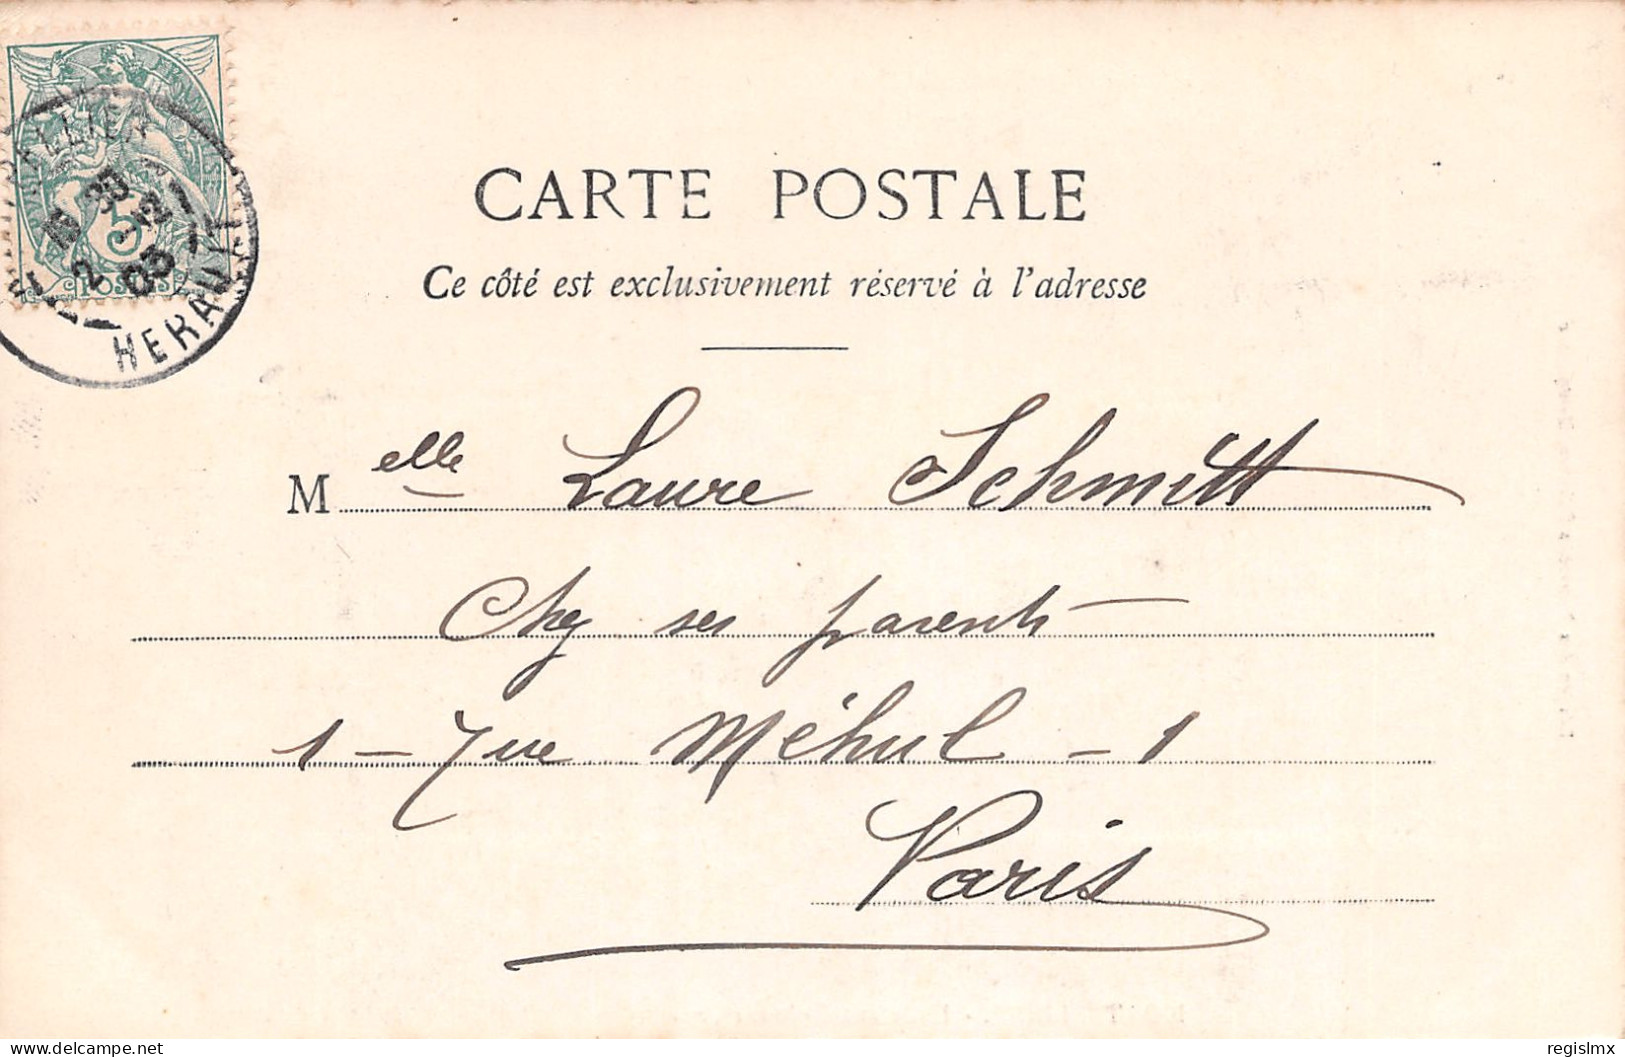 CARTE POSTALE
Ce côté est exclusivement réservé à l'adresse
Melle Laure Schmitt
Chez ses parents
1 – rue Méhul – 1
Paris
5
POSTES
HERAULT
www.delcampe.net
regislmx